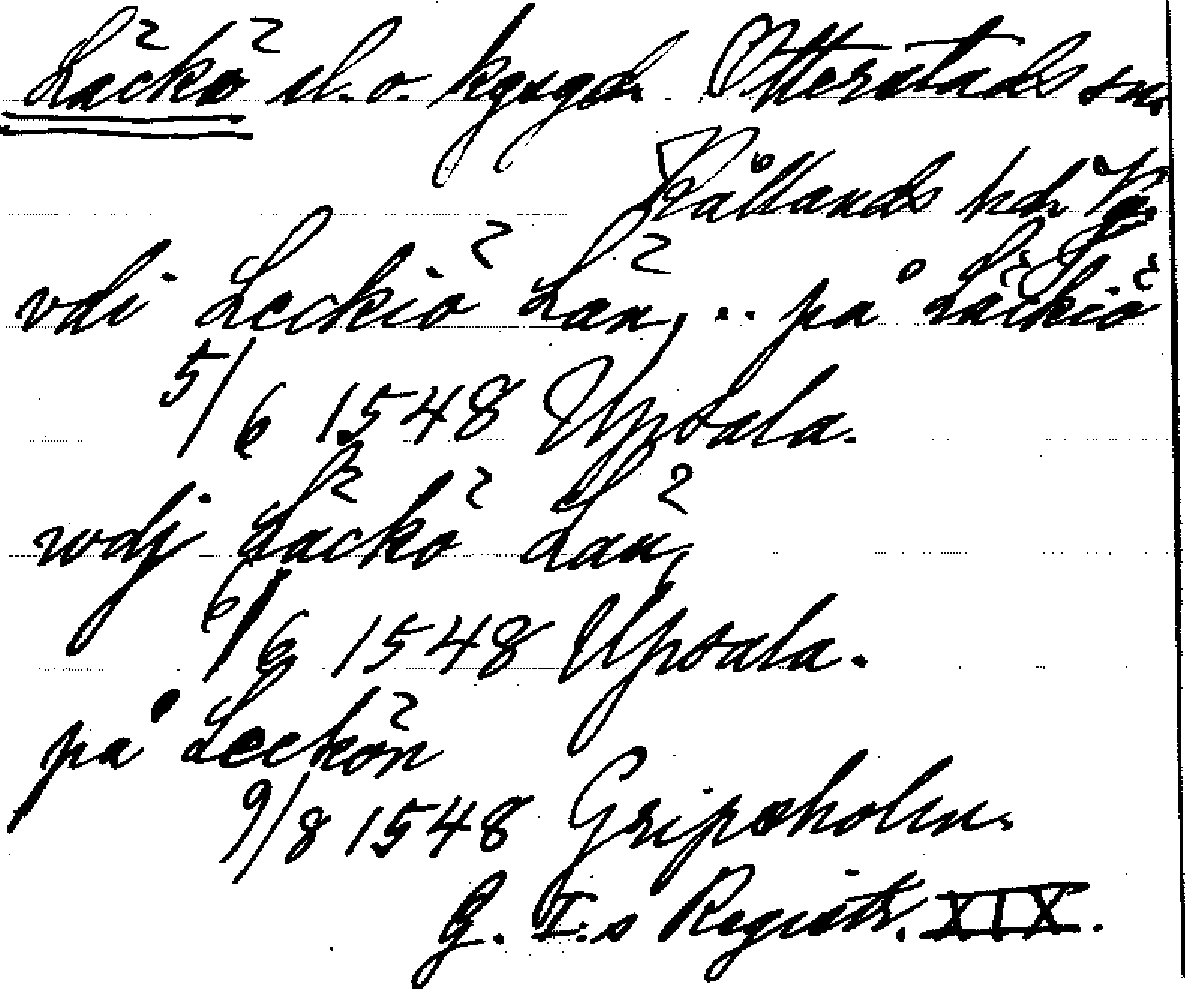 Läckö sl. o. kgsgd. Otterstads sn.
Kållands hd. Vg.
vdi Leckiö Län, .. på Läckiö
5/6 1548 Upsala.
wdj Läckö Län,
6/6 1548 Upsala.
på Leckön
9/8 1548 Gripsholm.
G. I:s Registr. XIX.